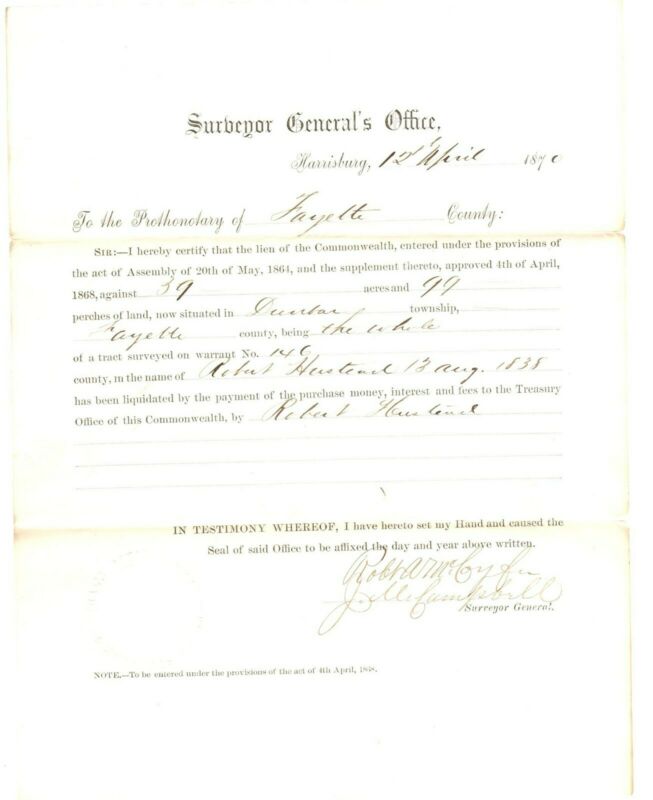 Surveyor General's Office,
Harrisburg, 12 April 1870
To the Prothonotary of Fayette County:
SIR:—I hereby certify that the lien of the Commonwealth, entered under the provisions of
the act of Assembly of 20th of May, 1864, and the supplement thereto, approved 4th of April,
1868, against 39 acres and 99
perches of land, now situated in Dunbar township,
Fayette county, being the whole
of a tract surveyed on warrant No. 146
county, in the name of Robert Huestead 13 aug. 1838
has been liquidated by the payment of the purchase money, interest and fees to the Treasury
Office of this Commonwealth, by Robert Huestead
IN TESTIMONY WHEREOF, I have hereto set my Hand and caused the
Seal of said Office to be affixed the day and year above written.
Robt A McCoy for
J. M. Campbell
Surveyor General.
NOTE.—To be entered under the provisions of the act of 4th April, 1868.